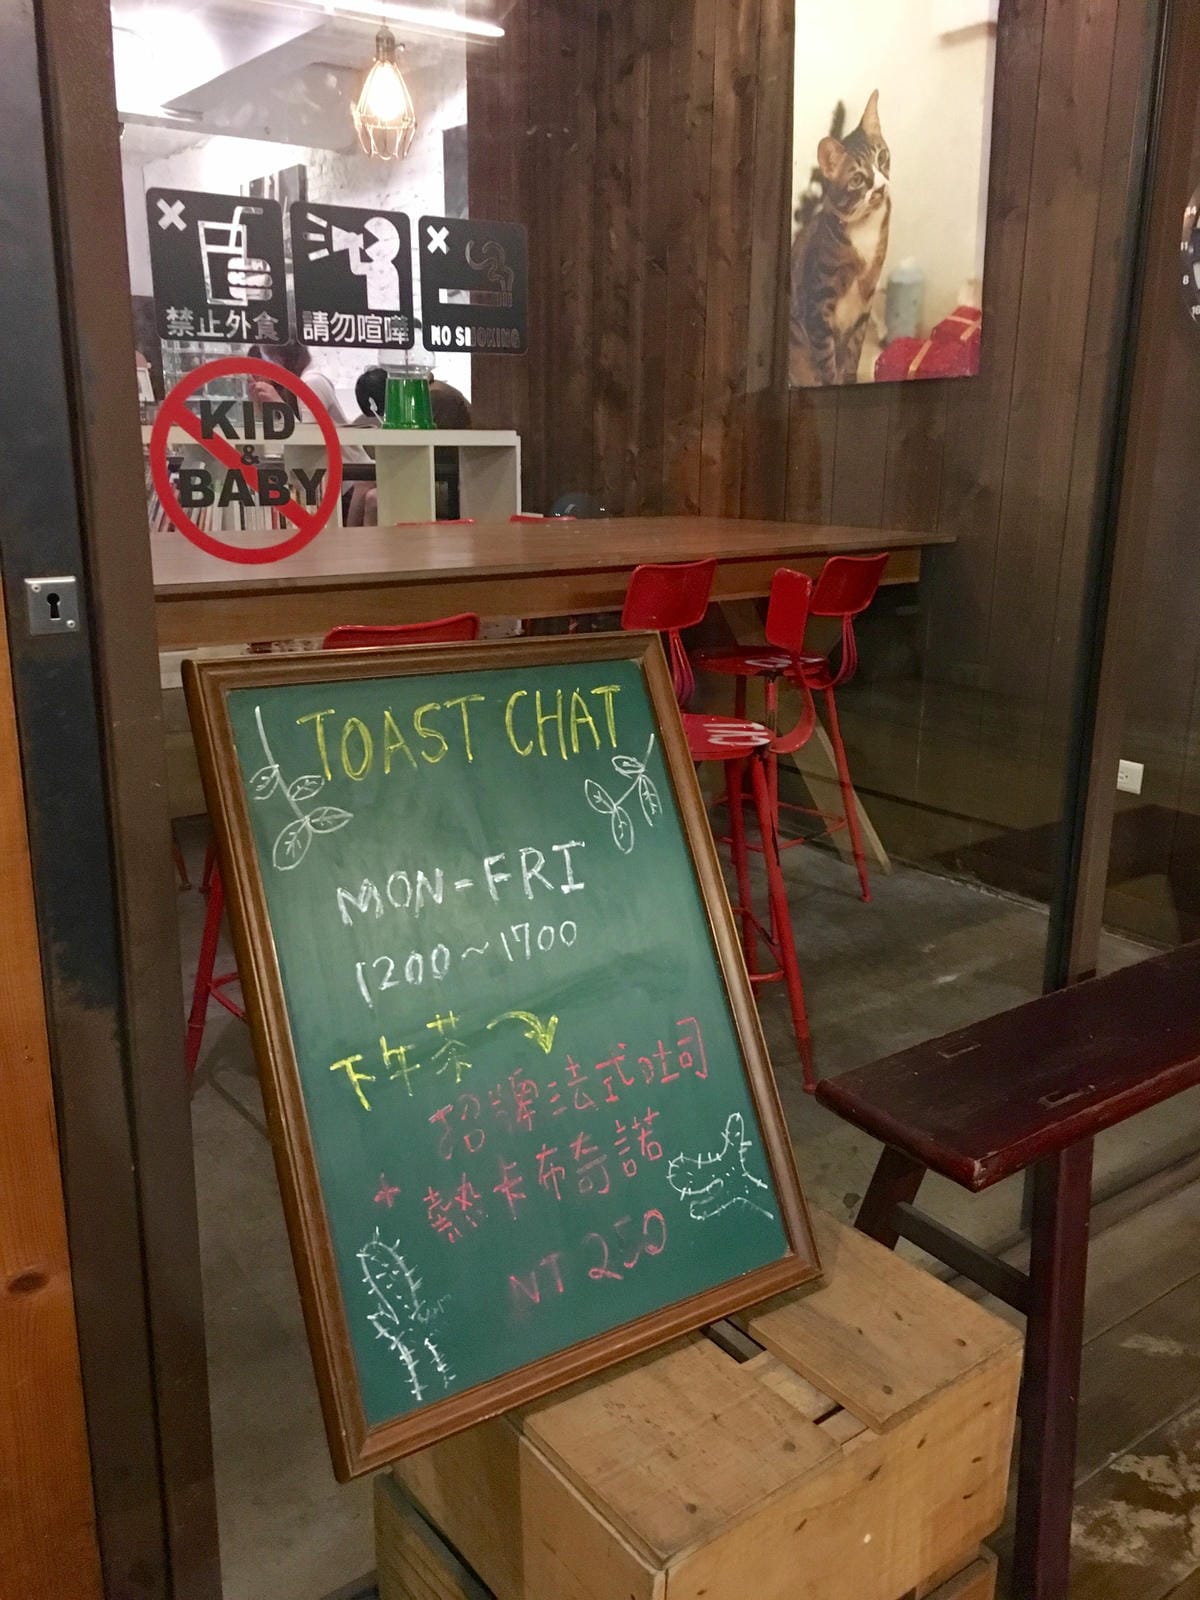 禁止外食
請勿喧嘩
NO SMOKING
KID
&
BABY
TOAST CHAT
MON-FRI
1200~1700
下午茶
招牌法式吐司
+ 熱卡布奇諾
NT 250